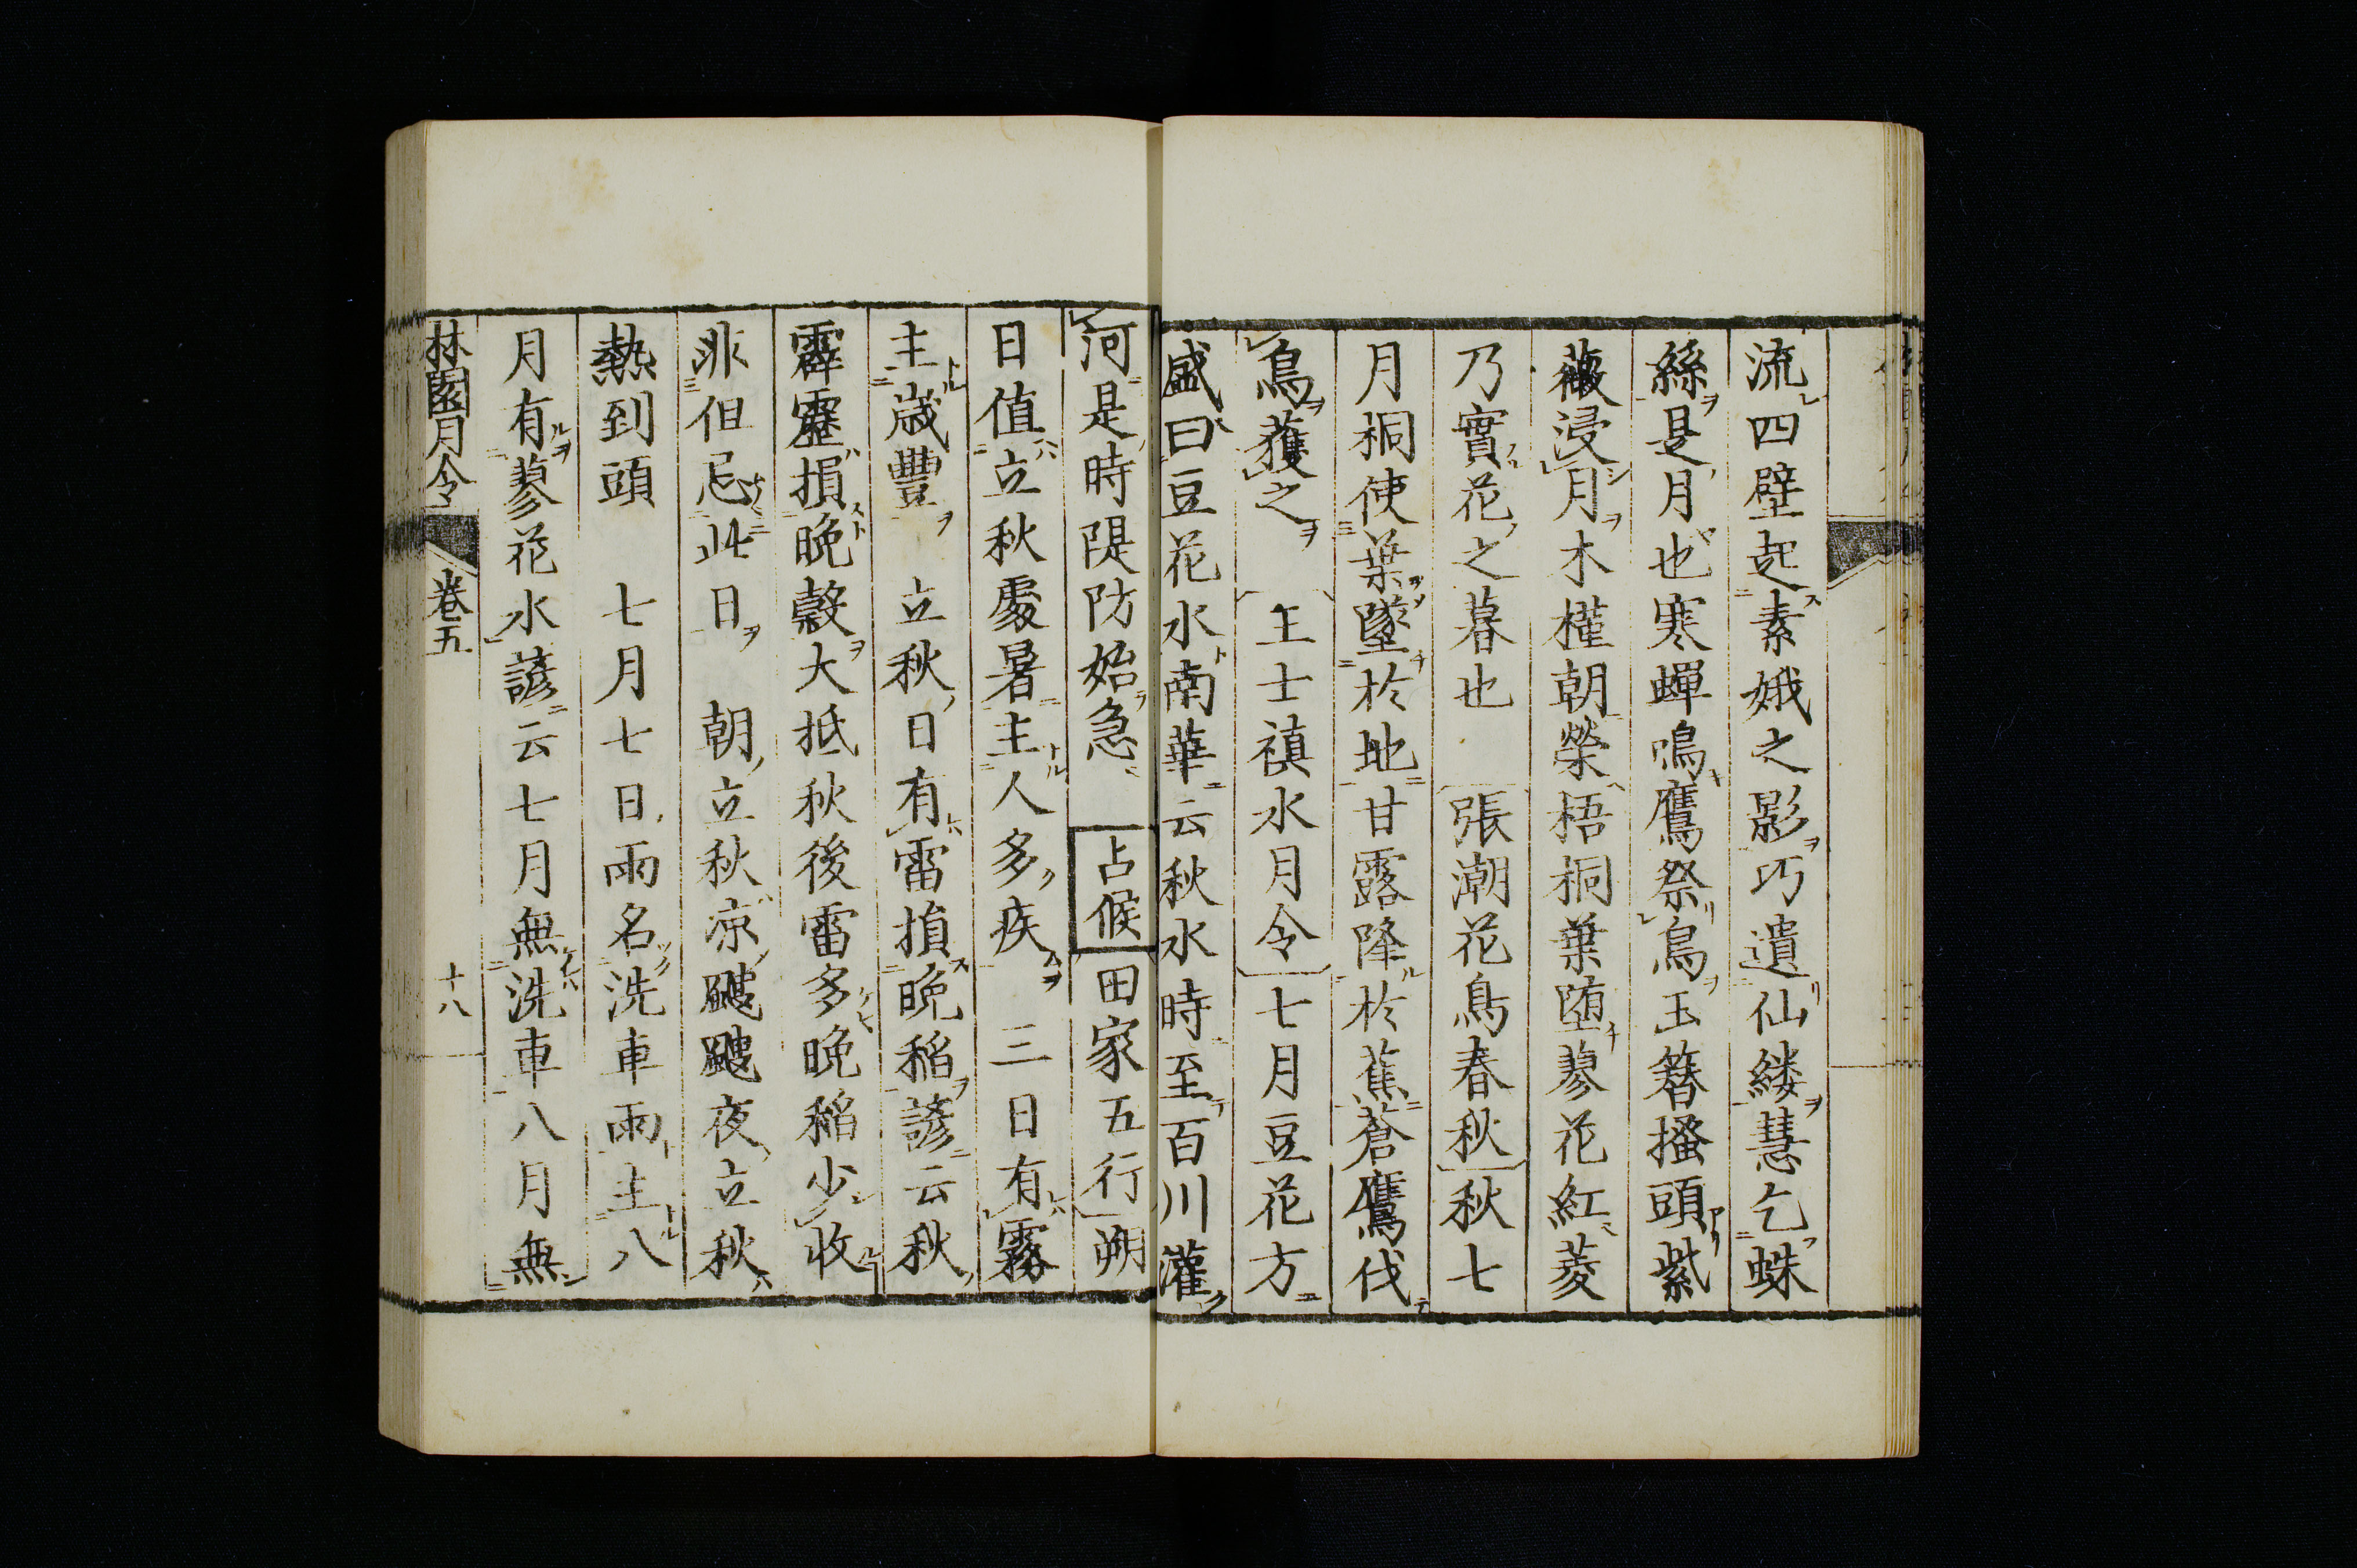 流四壁起素娥之影巧遺仙縷慧乞蛛
絲是月也寒蟬鳴鷹祭鳥玉簪搔頭紫
薇浸月木槿朝榮梧桐葉墮蓼花紅菱
乃實花之暮也　張潮花鳥春秋秋七
月桐使葉墜於地甘露降於蕉蒼鷹伐
鳥獲之　王士禛水月令七月豆花方
盛曰豆花水南華云秋水時至百川灌
河是時隄防始急　占候田家五行朔
日值立秋處暑主人多疾　三日有霧
主歲豐　立秋日有雷損晚稻諺云秋
霹靂損晚穀大抵秋後雷多晚稻少收
非但忌此日　朝立秋涼颼颼夜立秋
熱到頭　七月七日雨名洗車雨主八
月有蓼花水諺云七月無洗車八月無
林園月令　卷五　十八